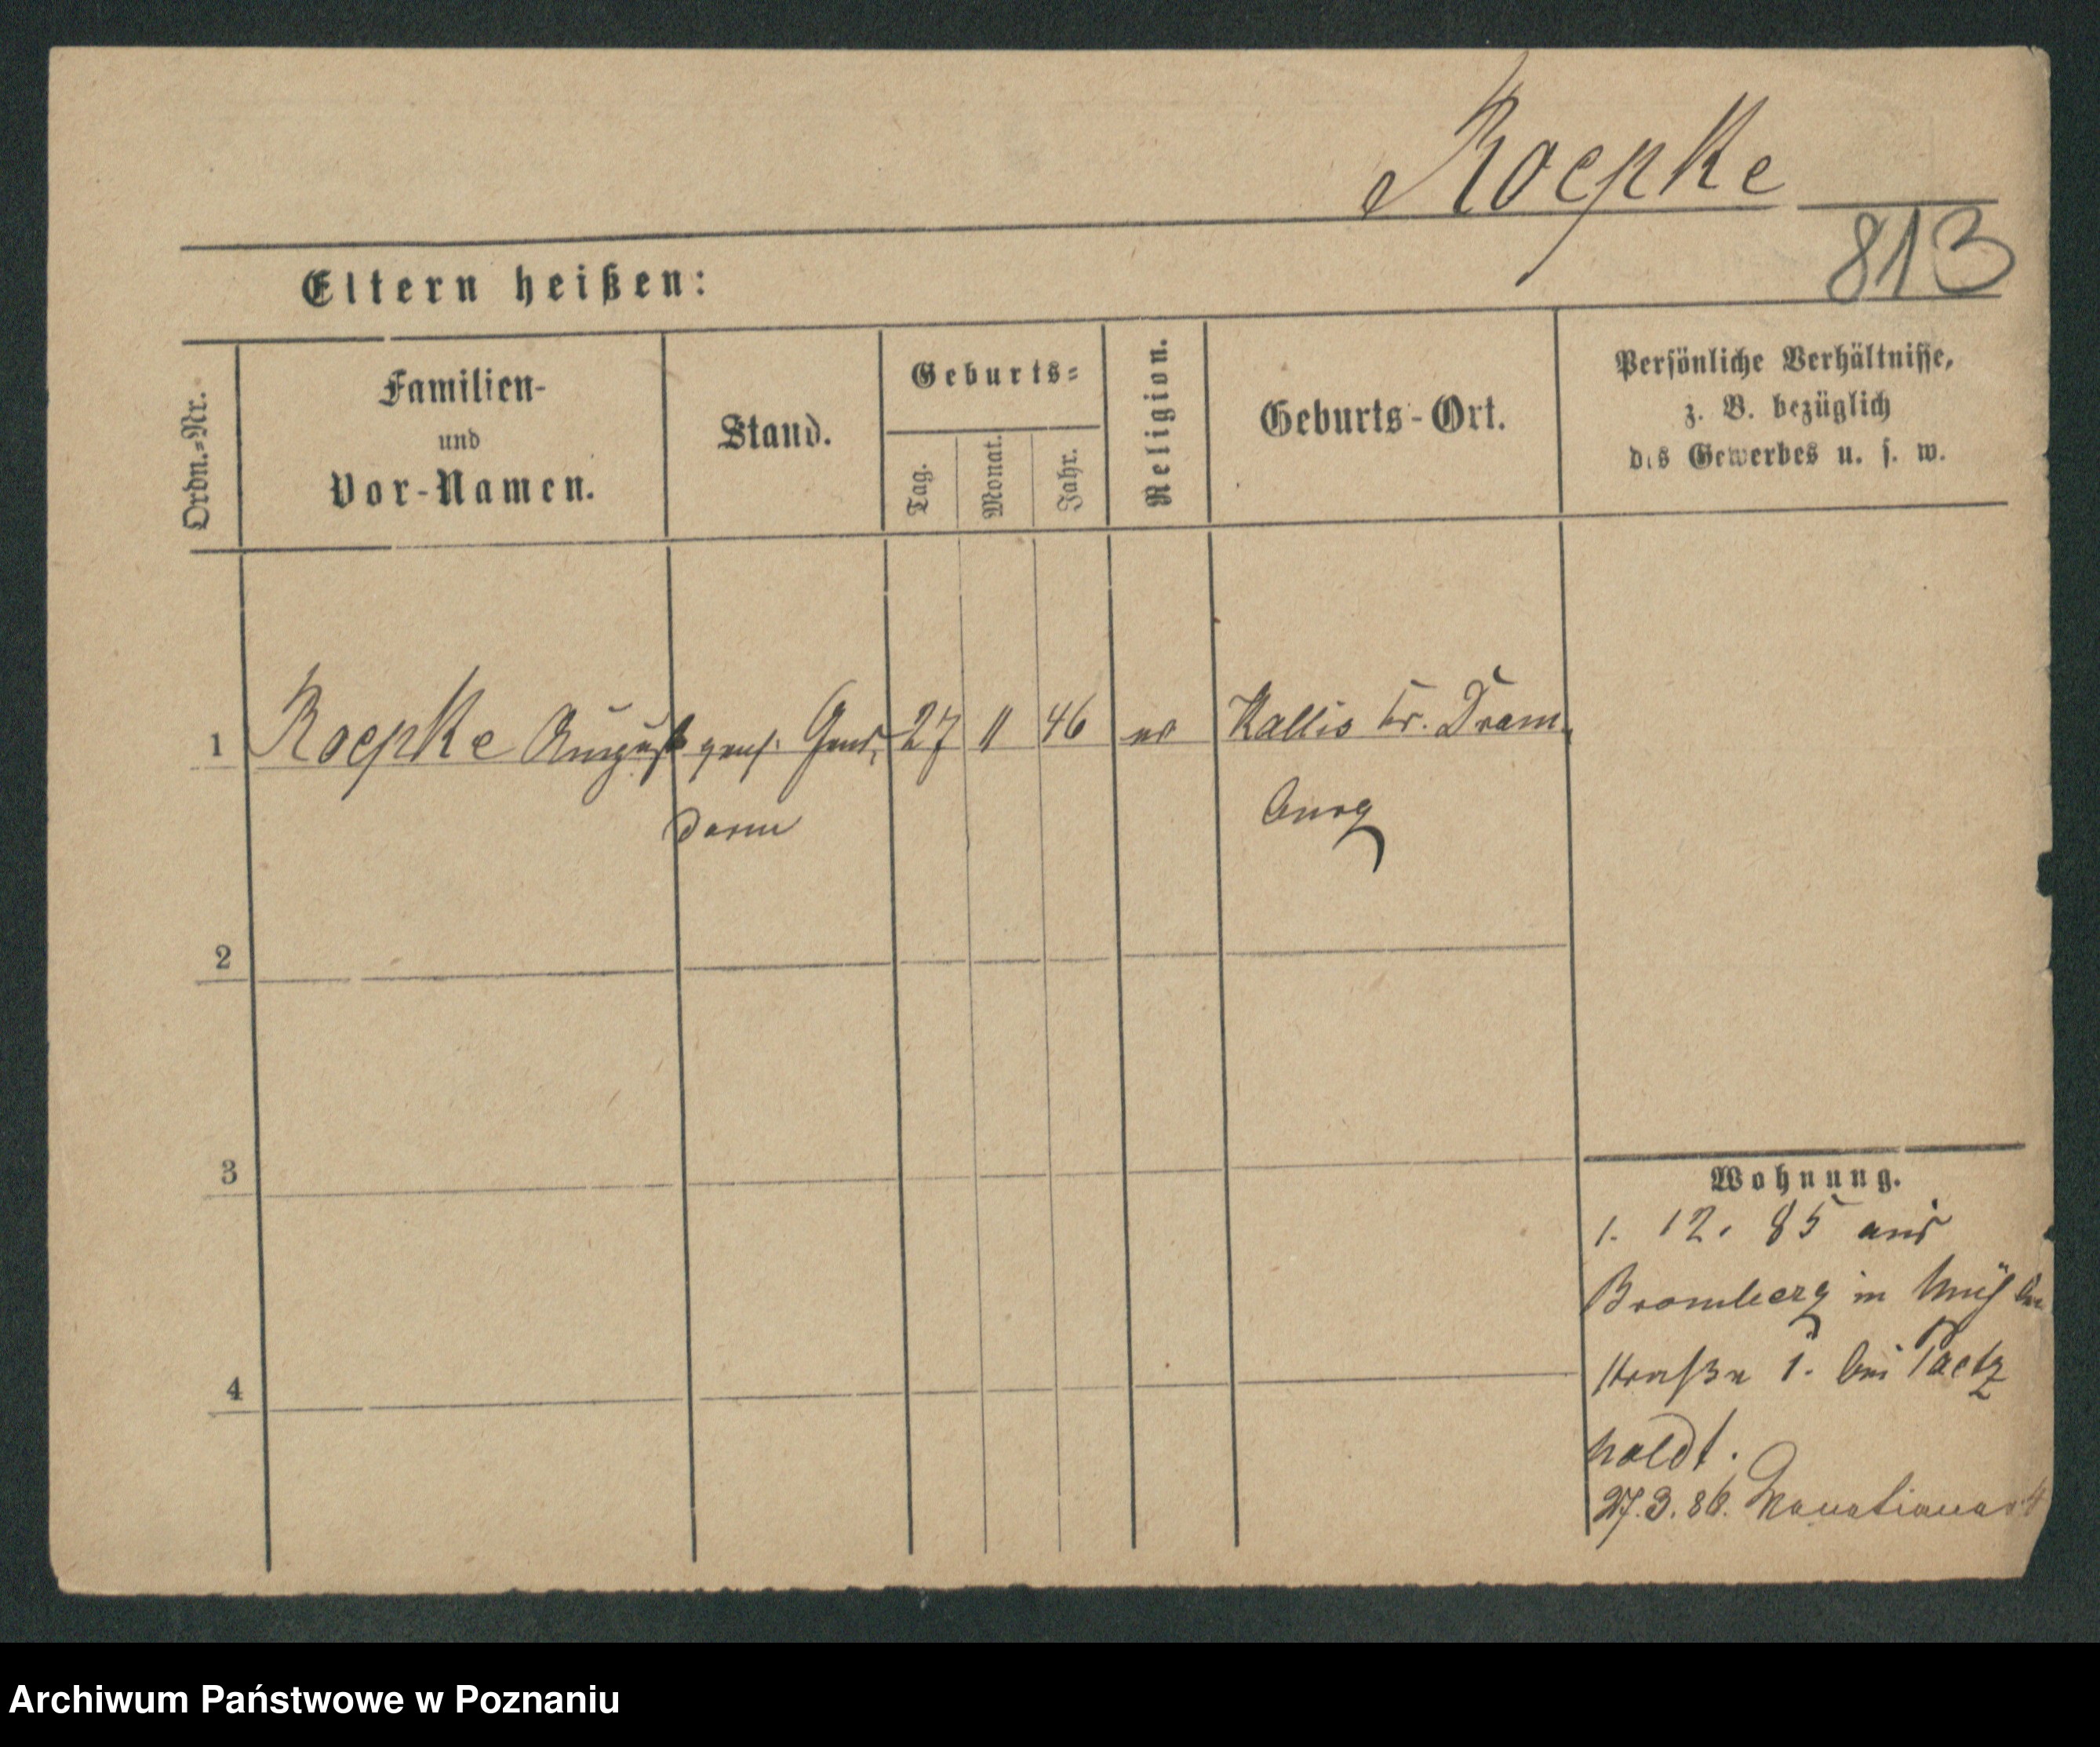 Roepke
813
Eltern heißen:
Ordn.-Nr.
Familien-
und
Vor-Namen.
Stand.
Geburts-
Tag.
Monat.
Jahr.
Religion.
Geburts-Ort.
Persönliche Verhältnisse,
z. B. bezüglich
des Gewerbes u. s. w.
1 Roepke August Gens 27 11 46 ev Kallis Kr. Dram-
darm burg
2
3
4
Wohnung.
1. 12. 85 aus
Bromberg in
straße 1. bei Paetz
holdt.
27.3.86.
Archiwum Państwowe w Poznaniu